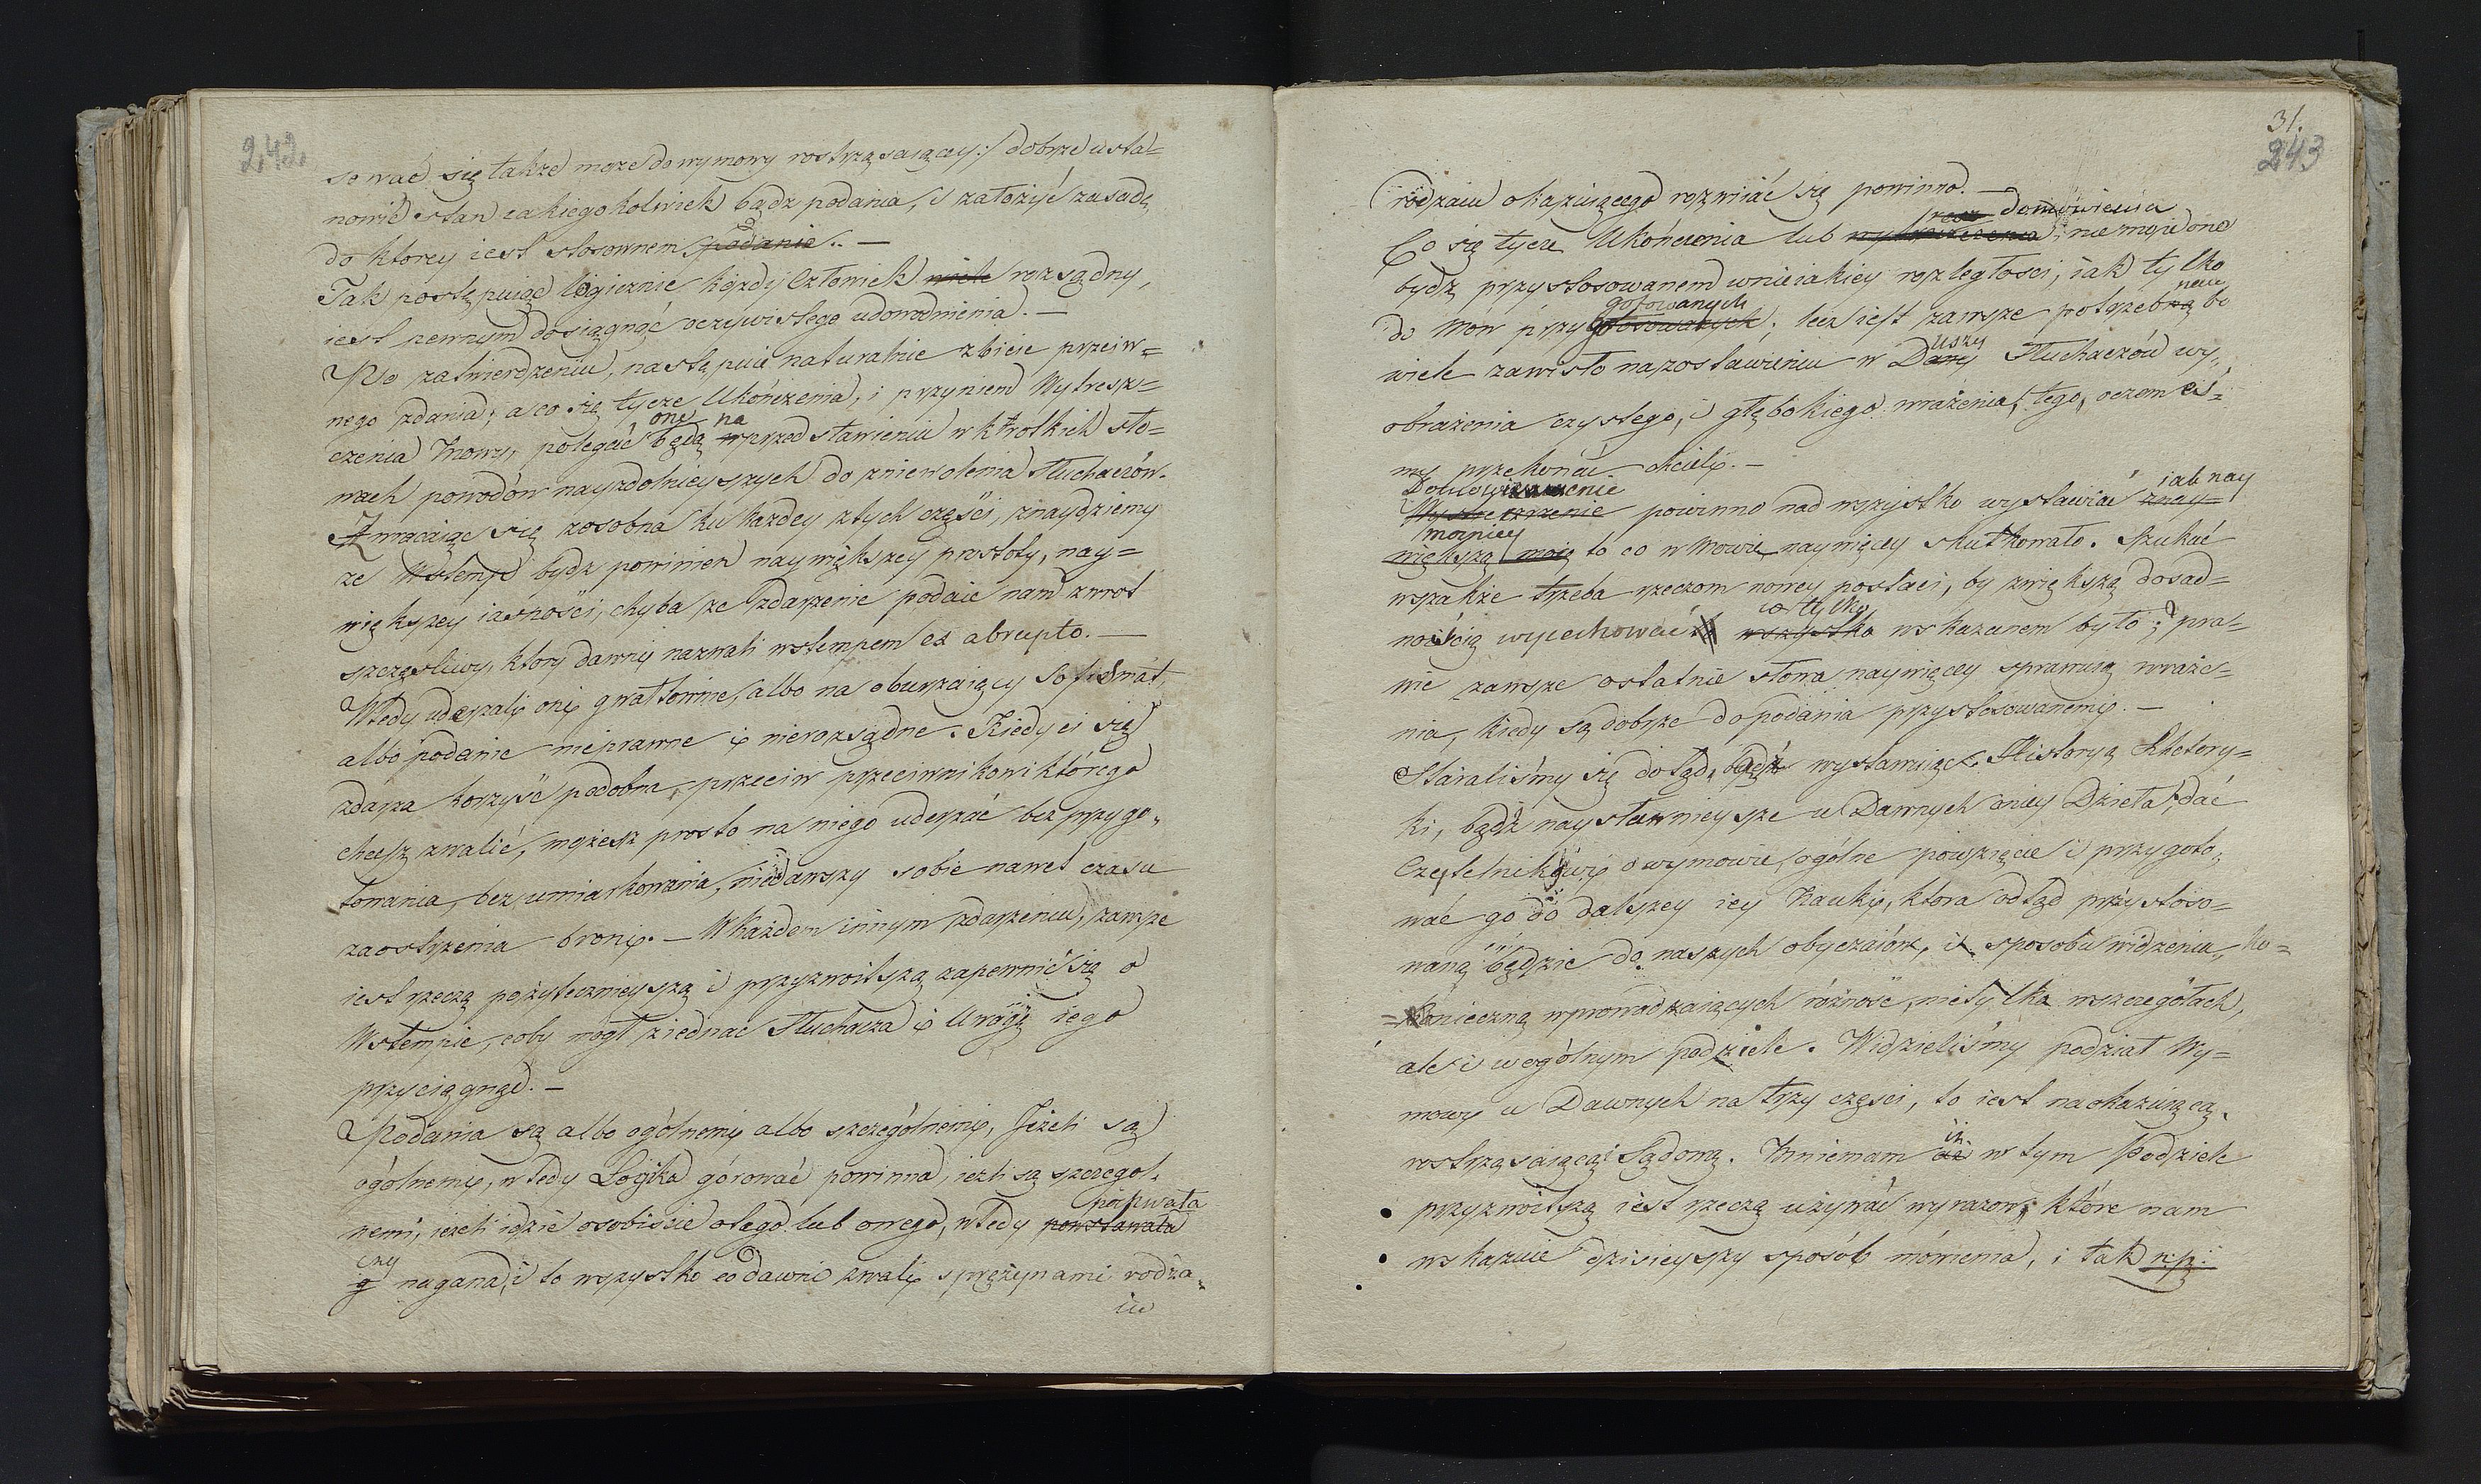 242
sować się także może do wymowy rostrząsaiącey:/ dobrze usta=
nowić stan iakiegokolwiek bądz podania, i założyć zasadę
do ktorey iest stosownem podanie. —
Tak postępuiąc logicznie każdy Człowiek rozsądny,
iest pewnym dosiągnąć oczywistego udowodnienia. —
Po zatwierdzeniu, nastąpuie naturalnie zbicie przeiw=
nego zdania; a co się tycze Ukończenia, i przyniem Wytresz=
one na
czenia Mowy, polegać będą w przedstawieniu w krotkich sło=
wach powodów nayzdolnieyszych do zniewolenia Słuchaczów.
Zwracaiąc się zosobna ku każdey z tych części, znaydziemy
że Wstemp bydz powinien naywiększey prostoty, nay=
większey iasności, chyba że zdarzenie podaie nam zwrot
szczęsliwy, ktory dawni nazwali wstempem ex abrupto. —
Wtedy uderzali oni gwałtownie, albo na oburzaiący Sofismat,
albo podanie nieprawne i nierozsądne. Kiedy ci się
zdarza korzyść podobna, przeciw przeciwnikowi którego
chcesz zwalić, możesz prosto na niego uderzać bez przygo„
towania, bez umiarkowania, niedawszy sobie nawet czasu
zaostrzenia broni. — W każdem innym zdarzeniu, zawsze
iest rzeczą pożytecznieyszą i przyzwoitszą zapewnić się o
Wstempie, coby mogł ziednac Słuchacza i Uwagę iego
przyciągnąć. —
Podania są albo ogólnemi albo szczególnemi, Jeżeli są
ogólnemi, wtedy Logika górować powinna, ieżli są szczegol„
pochwała
nemi, ieżeli idzie osobiście o tego lub owego, wtedy powstawała
czy
g nagana, i to wszystko co dawni zwali sprężynami rodza„
iu
31.
243
rodzaiu okazuiącego rozwiiać się powinno. —
domówienia
Co się tycze Ukończenia lub wytreszczenia, nie może ono
bydz przystosowanem w nieiakiey rozległości, iak tylko
gotowanych nem
do Mów przygotosowanych; lecz iest zawsze potrzebną bo
uszy
wiele zawisło na zostawieniu w Dany Słuchaczów wy„
obrażenia czystego, i głębokiego wrażenia, tego, oczem eś=
my przekonać chcieli. —
iak nay
powinno nad wszystko wystawiać znay=
mocniey
większą mocą to co w Mowie naywięcey skutkowało. Szukać
wszakże trzeba rzeczom nowey postaci, by zwiększą dosad=
co tylko
nością wycechować wszystko wskazanem było; pra=
wie zawsze ostatnie słowa naywięcey sprawuią wraże=
nia, kiedy są dobrze do podania przystosowanemi. —
Staraliśmy się dotąd, bądź wystawiąc Historyą Rhetory=
ki, bądź naysławnieysze u Dawnych oniey Dzieła, dać
Czytelnikowi o wymowie ogólne powzięcie i przygoto„
wać go do dalszey iey Nauki, ktora odtąd przystoso=
waną będzie do naszych obyczaiów, i sposobu widzenia, ko=
=konieczną wprowadzaiących różność, nietylko w szczegółach,
ale i w ogólnym podziele. Widzieliśmy podział Wy=
mowy u Dawnych na trzy części, to iest na okazuiącą,
iż
rostrząsaiącą i Sądową. Mniemam że w tym Podziele
przyzwoitszą iest rzeczą używać wyrazow, które nam
wskazuie dzisieyszy sposób mówienia, i tak np: